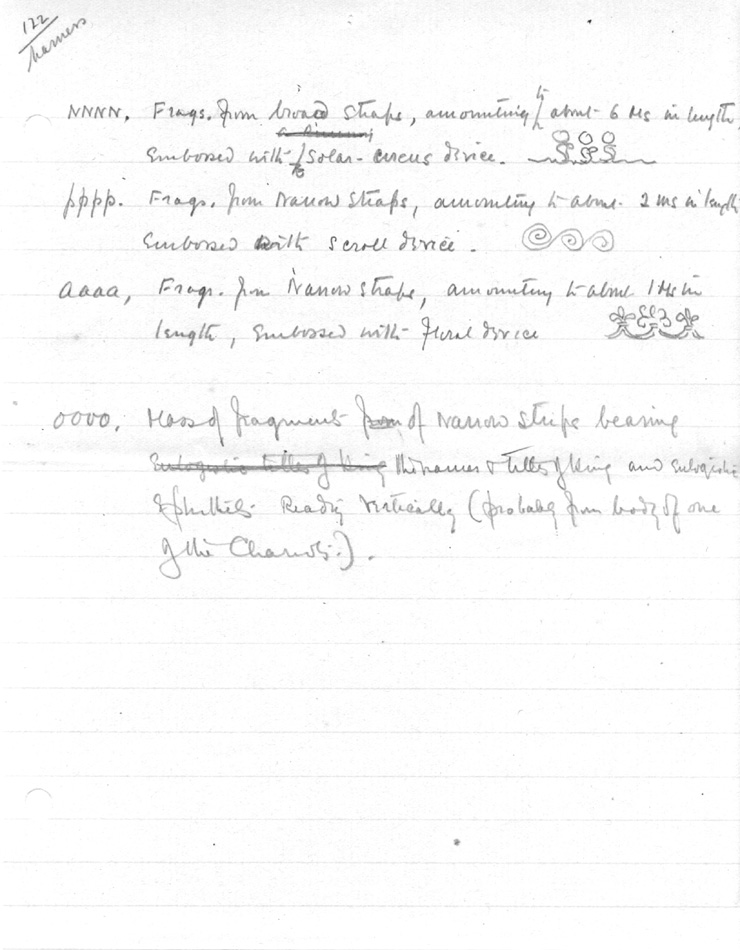 122
harness
NNNN. Frags. from broad straps, amounting to about 6 Ms in length,
Embossed with solar-circus device.
pppp. Frags. from Narrow straps, amounting to about 2 ms in length
Embossed with scroll device.
aaaa, Frags. from Narrow straps, amounting to about 1 Ms in
length, Embossed with floral device
oooo. Mass of fragments from of Narrow strips bearing
Eulogistic titles of King the names & titles of King and Eulogistic
Ephithets Reading Vertically (probably from body of one
of the Chariots.).